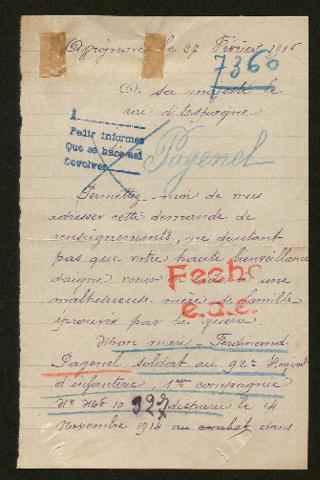 Avignon le 27 Février 1916
7360
A sa majesté le
roi d'Espagne
A
Pedir informes
Que se hace así
Devolver
Pagenel
Permettez-moi de vous
adresser cette demande de
renseignements, ne doutant
pas que votre haute bienveillance
daigne venir en aide à une
malheureuse mère de famille
éprouvée par la guerre
Fecho
e.a.c.
Mon mari Ferdinand
Pagenel soldat au 92e Régint
d'infanterie 1ere compagnie
No Mle 10 327 disparu le 14
Novembre 1914 au combat dans